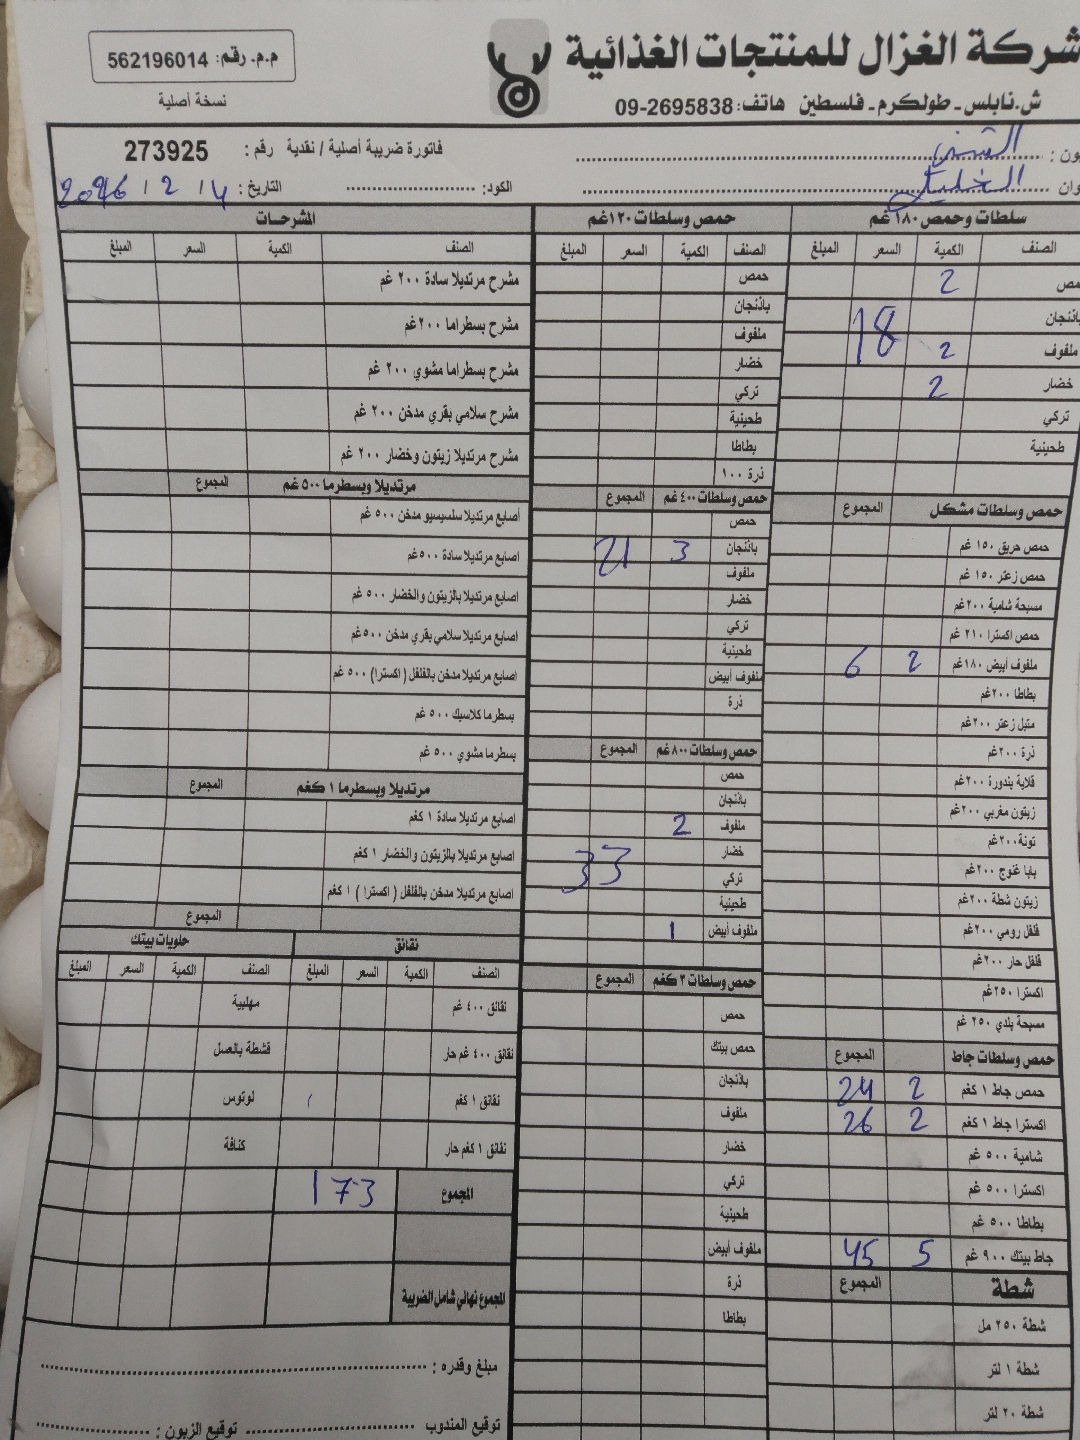 شركة الغزال للمنتجات الغذائية
م.م. رقم: 562196014
ش.نابلس - طولكرم - فلسطين هاتف: 09-2695838
نسخة أصلية
فاتورة ضريبة أصلية / نقدية رقم: 273925
التاريخ: 4 / 2 / 2026
الكود:
الخليل
سلطات وحمص ١٨٠ غم
الصنف الكمية السعر المبلغ
حمص 2
باذنجان
ملفوف 2 18
خضار 2
تركي
طحينية
حمص وسلطات مشكل المجموع
حمص حريق ١٥٠ غم
حمص زعتر ١٥٠ غم
مسبحة شامية ٢٠٠غم
حمص اكسترا ٢١٠ غم
ملفوف أبيض ١٨٠غم 2 6
بطاطا ٢٠٠غم
متبل زعتر ٢٠٠غم
ذرة ٢٠٠غم
قلاية بندورة ٢٠٠غم
زيتون مغربي ٢٠٠غم
تونة ٢٠٠غم
بابا غنوج ٢٠٠غم
زيتون شطة ٢٠٠غم
فلفل رومي ٢٠٠غم
فلفل حار ٢٠٠غم
اكسترا ٢٥٠غم
مسبحة بلدي ٢٥٠ غم
حمص وسلطات جاط المجموع
حمص جاط ١ كغم 2 24
اكسترا جاط ١ كغم 2 26
شامية ٥٠٠ غم
اكسترا ٥٠٠ غم
بطاطا ٥٠٠ غم
جاط بيتك ٩٠٠ غم 5 45
شطة المجموع
شطة ٢٥٠ مل
شطة ١ لتر
شطة ٢٠ لتر
حمص وسلطات ١٢٠غم
الصنف الكمية السعر المبلغ
حمص
باذنجان
ملفوف
خضار
تركي
طحينية
بطاطا
ذرة ١٠٠
حمص وسلطات ٤٠٠ غم المجموع
حمص
باذنجان 3 21
ملفوف
خضار
تركي
طحينية
ملفوف أبيض
ذرة
حمص وسلطات ٨٠٠ غم المجموع
حمص
باذنجان
ملفوف 2
خضار 33
تركي
طحينية
ملفوف أبيض 1
حمص وسلطات ٣ كغم المجموع
حمص
حمص بيتك
باذنجان
ملفوف
خضار
تركي
طحينية
ملفوف أبيض
ذرة
بطاطا
المشرحات
الصنف الكمية السعر المبلغ
مشرح مرتديلا سادة ٢٠٠ غم
مشرح بسطراما ٢٠٠غم
مشرح بسطراما مشوي ٢٠٠ غم
مشرح سلامي بقري مدخن ٢٠٠ غم
مشرح مرتديلا زيتون وخضار ٢٠٠ غم
مرتديلا وبسطرما ٥٠٠ غم المجموع
أصابع مرتديلا سلسيسيو مدخن ٥٠٠ غم
اصابع مرتديلا سادة ٥٠٠غم
اصابع مرتديلا بالزيتون والخضار ٥٠٠ غم
اصابع مرتديلا سلامي بقري مدخن ٥٠٠غم
اصابع مرتديلا مدخن بالفلفل (اكسترا) ٥٠٠ غم
بسطرما كلاسيك ٥٠٠ غم
بسطرما مشوي ٥٠٠ غم
مرتديلا وبسطرما ١ كغم المجموع
اصابع مرتديلا سادة ١ كغم
اصابع مرتديلا بالزيتون والخضار ١ كغم
اصابع مرتديلا مدخن بالفلفل ( اكسترا ) ١ كغم
المجموع
نقانق حلويات بيتك
الصنف الكمية السعر المبلغ الصنف الكمية السعر المبلغ
نقانق ٤٠٠ غم مهلبية
نقانق ٤٠٠ غم حار قشطة بالعسل
نقانق ١ كغم لوتوس
نقانق ١ كغم حار كنافة
المجموع 173
المجموع نهائي شامل الضريبة
مبلغ وقدره :
توقيع المندوب توقيع الزبون :